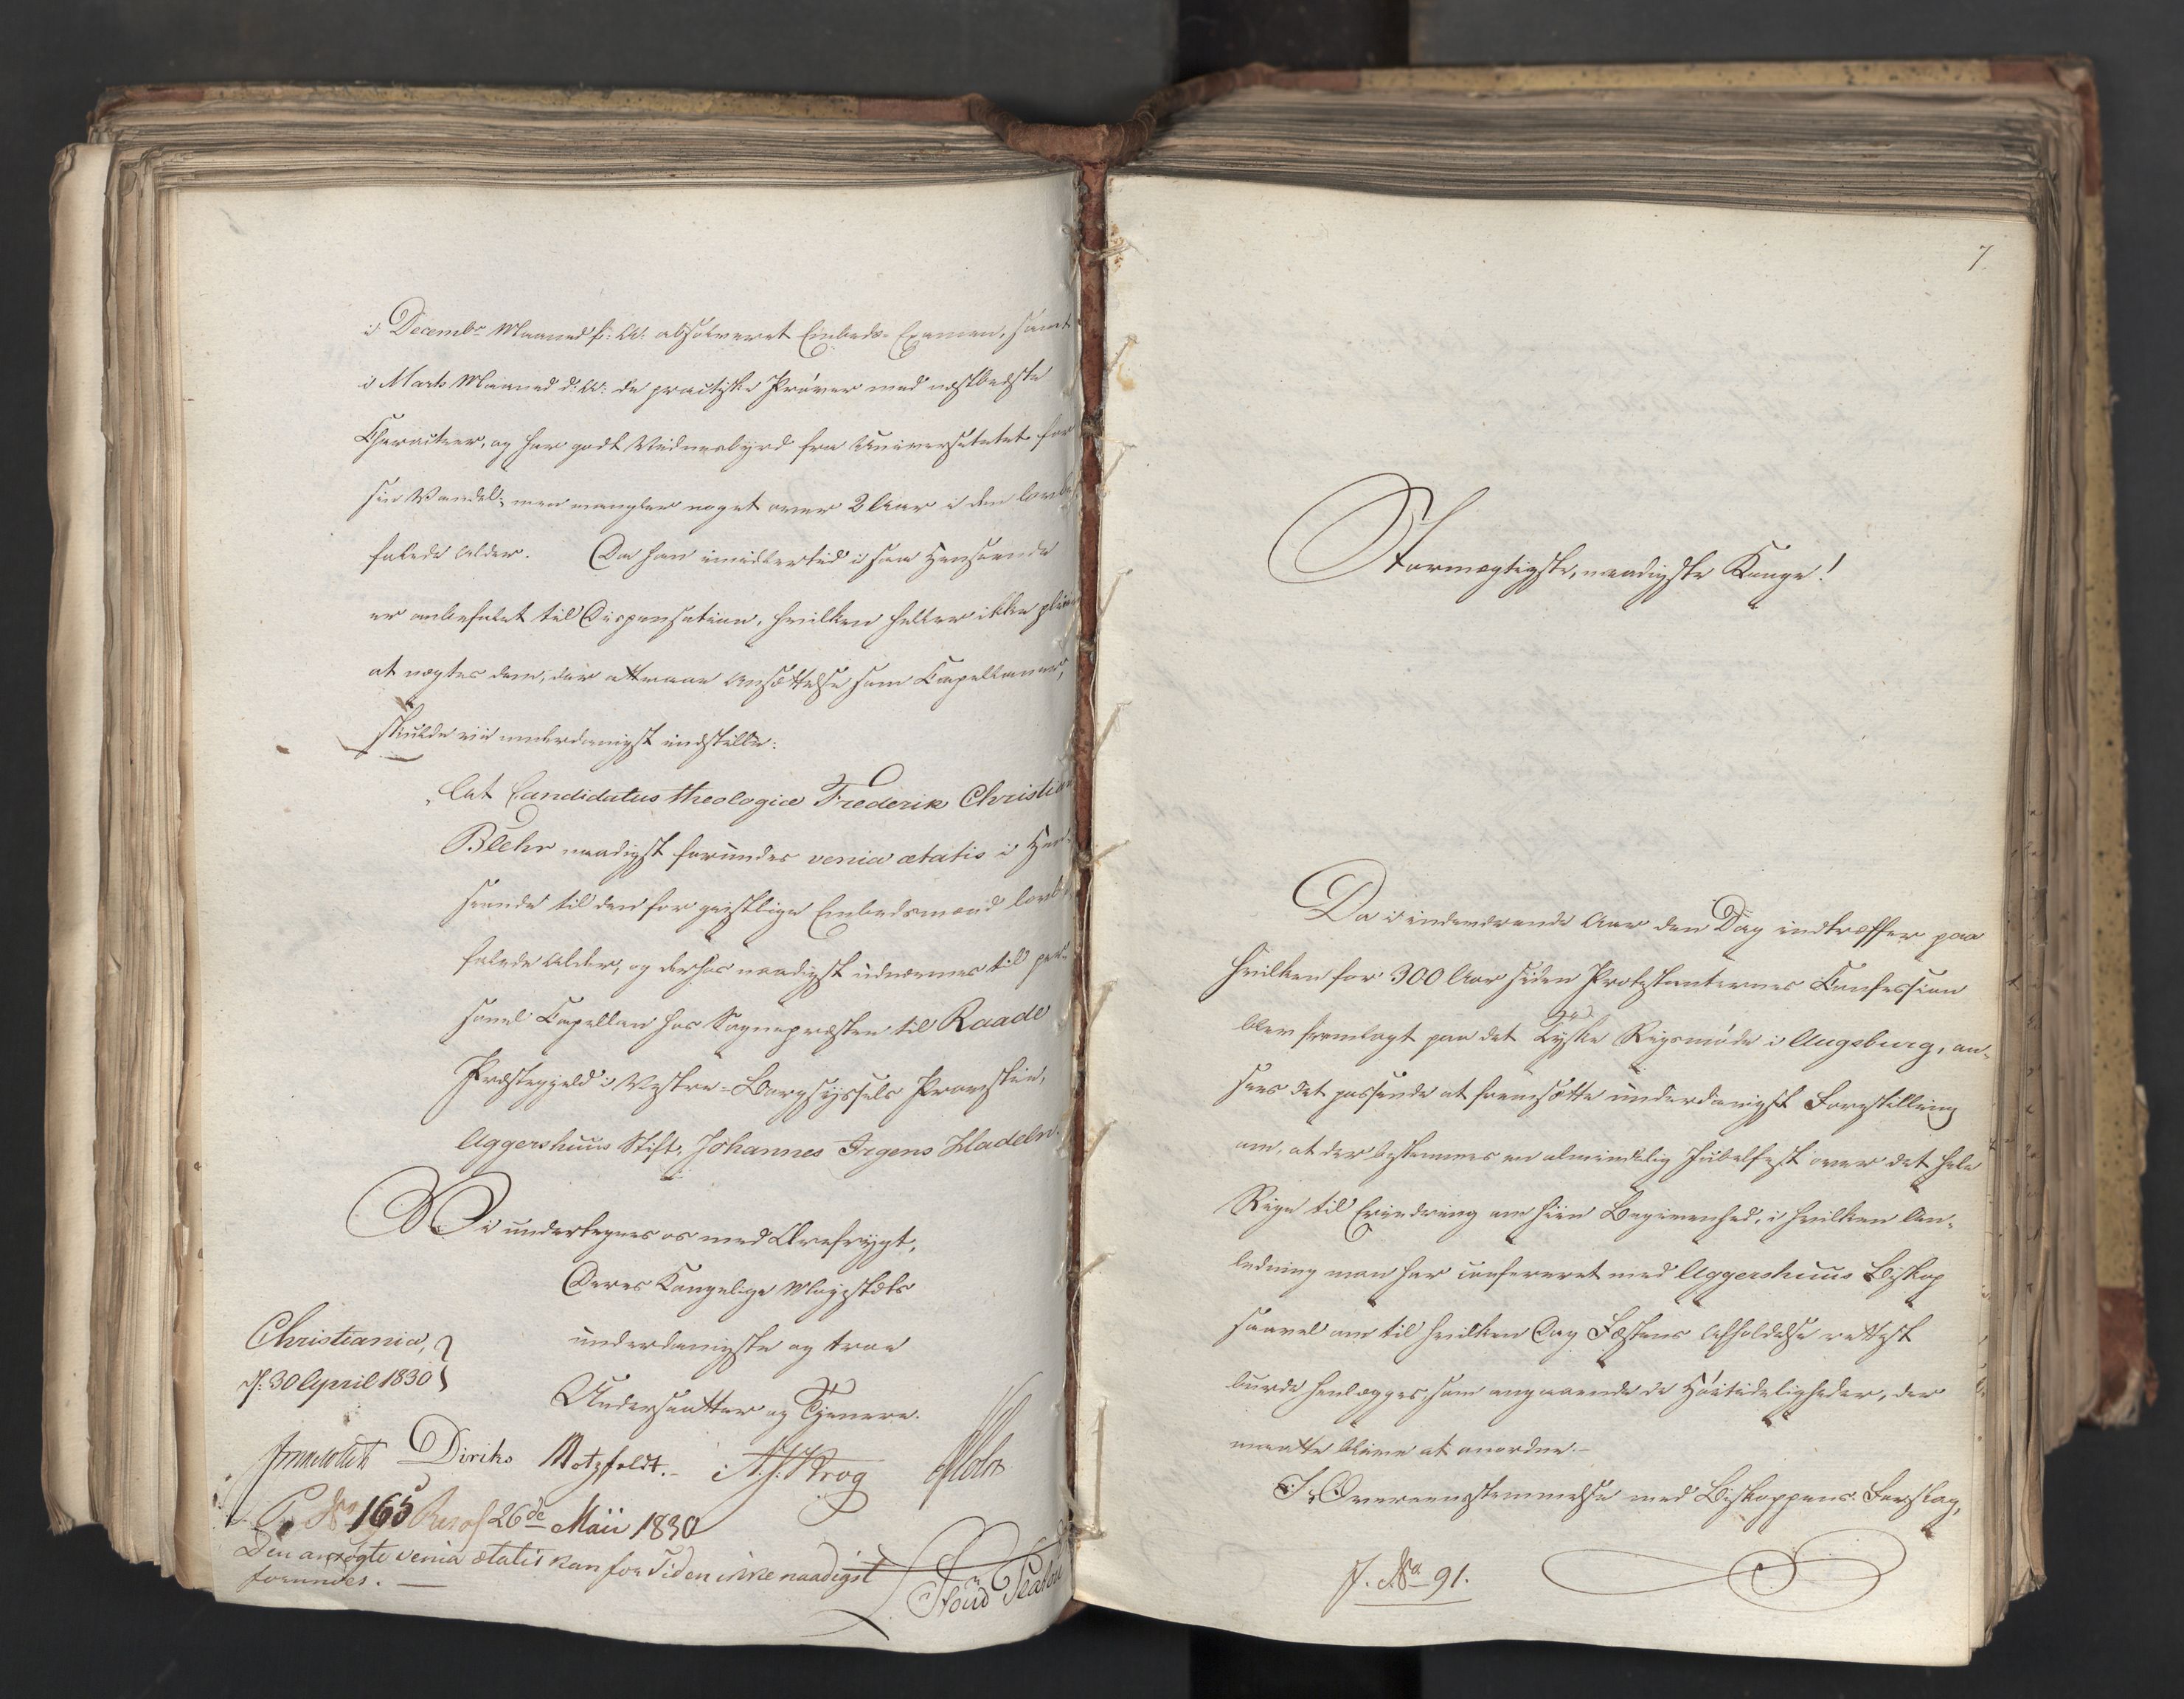 i Decembr Maaned f: A: absolveret Embeds-Examen, samt
i Marts Maaned d: A: de practiske Prøver med næstbedste
Character, og har godt Vidnesbyrd fra Universitetet for
sin Vandel; men mangler noget over 2 Aar i den lovbe-
falede Alder. Da han imidlertid i saa Henseende
er anbefalet til Dispensation, hvilken heller ikke pleier
at nægtes dem, der attraae Ansættelse som Capellaner,
skulde vi underdanigst indstille:
At Candidatus theologiæ Frederik Christian
Blehr naadigst forundes venia ætatis i Hen-
seende til den for geistlige Embedsmænd lovbe-
falede Alder, og derhos naadigst udnævnes til per-
sonel Capellan hos Sognepræsten til Raade
Præstegjeld i Vestre-Borgesyssels Provstie,
Aggershuus Stift, Johannes Irgens Hadeln.
Vi undertegnes os med Ærefrygt,
Deres Kongelige Majestæts
underdanigste og troe
Undersaatter og Tjenere.
Christiania,
d: 30 April 1830
Diriks Motzfeldt. Krog Holst
No 165 Resol 26de Maii 1830
Den ansøgte venia ætatis kan for Tiden ikke naadigst
forundes. —
7
Stormægtigste, naadigste Konge!
Da i indeværende Aar den Dag indtræffer paa
hvilken for 300 Aar siden Protestanternes Confession
blev fremlagt paa det Tydske Rigsmøde i Augsburg, an-
sees det passende at fremsætte underdanigst Forestilling
om, at der bestemmes en almindelig Jubelfest over det hele
Rige til Erindring om hiin Begivenhed, i hvilken An-
ledning man har confereret med Aggershuus Biskop
saavel om til hvilken Dag Festens Afholdelse rettest
burde henlægges, som angaaende de Høitideligheder, der
maatte blive at anordne.—
I Overeensstemmelse med Biskoppens Forslag,
J. No 91.